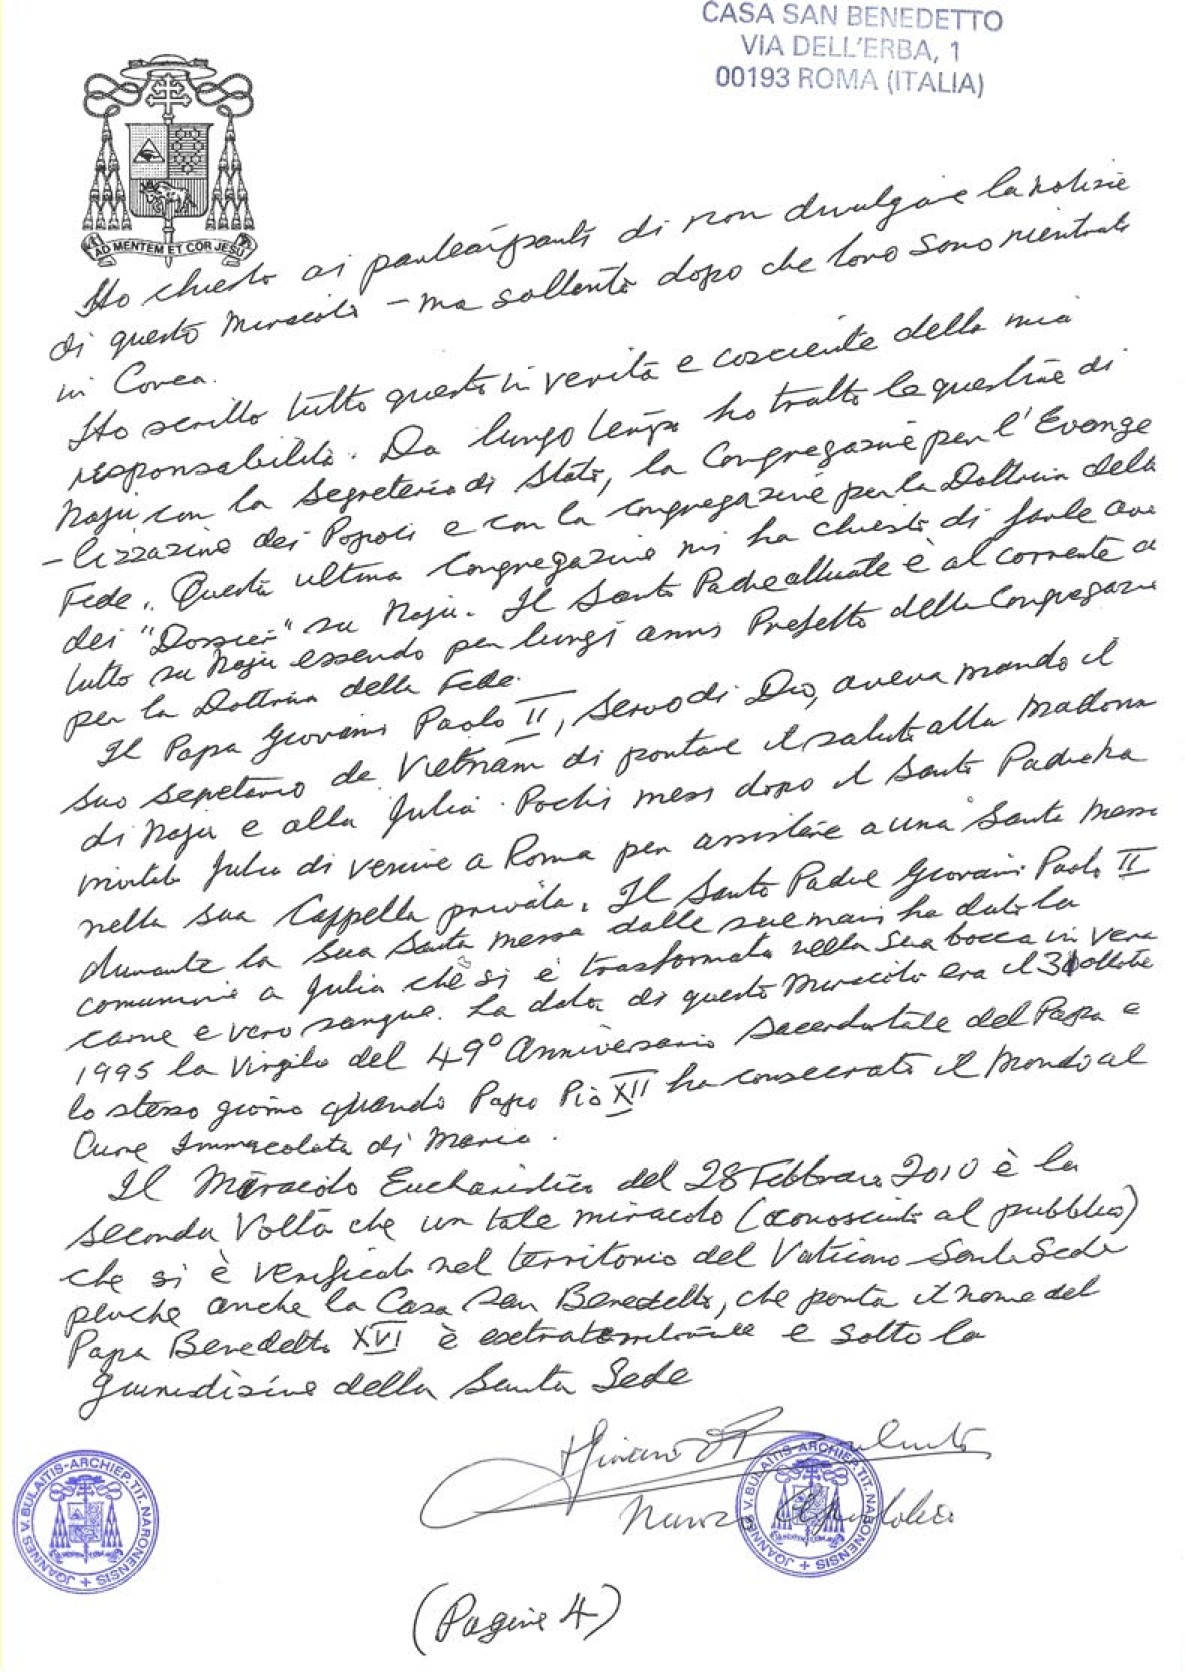 CASA SAN BENEDETTO
VIA DELL'ERBA, 1
00193 ROMA (ITALIA)
AD MENTEM ET COR JESU
Ho chiesto ai partecipanti di non divulgare la notizie
di questo Miracolo - ma soltanto dopo che loro sono rientrati
in Corea.
Ho scritto tutto questo in verità e cosciente della mia
responsabilità. Da lungo tempo ho tratto le questione di
Naju con la Segreteria di Stato, la Congregazione per l'Evange
-lizzazione dei Popoli e con la Congregazione per la Dottrina della
Fede. Questa ultima Congregazione mi ha chiesto di farle ave
dei "Dossier" su Naju. Il Santo Padre attuale è al corrente d
tutto su Naju essendo per lungi anni Prefetto della Congregazio
per la Dottrina della Fede.
Il Papa Giovanni Paolo II, Servo di Dio, aveva mando il
suo segretario da Vietnam di portare il saluto alla Madonna
di Naju e alla Julia. Pochi mesi dopo il Santo Padre ha
invitato Julia di venire a Roma per assistere a una Santa Messa
nella sua Cappella privata. Il Santo Padre Giovanni Paolo II
durante la sua Santa Messa dalle sue mani ha dato la
comunione a Julia che si è trasformata nella sua bocca in vera
carne e vero sangue. La data di questo Miracolo era il 31 ottobre
1995 la Virgilia del 49° Anniversario Sacerdotale del Papa e
lo stesso giorno quando Papa Pio XII ha consecrato il Mondo al
Cuore Immacolata di Maria.
Il Miracolo Eucharistico del 28 Febbraio 2010 è la
seconda volta che un tale miracolo (conosciuto al pubblico)
che si è verificato nel territorio del Vaticano Santa Sede
perche anche la Casa San Benedetto, che porta il nome del
Papa Benedetto XVI è e sotto la
Giurisdizione della Santa Sede
Nunzio Apostolico
JOANNES V. BULAITIS-ARCHIEP. TIT. NARONENSIS +
JOANNES V. BULAITIS-ARCHIEP. TIT. NARONENSIS +
(Pagine 4)